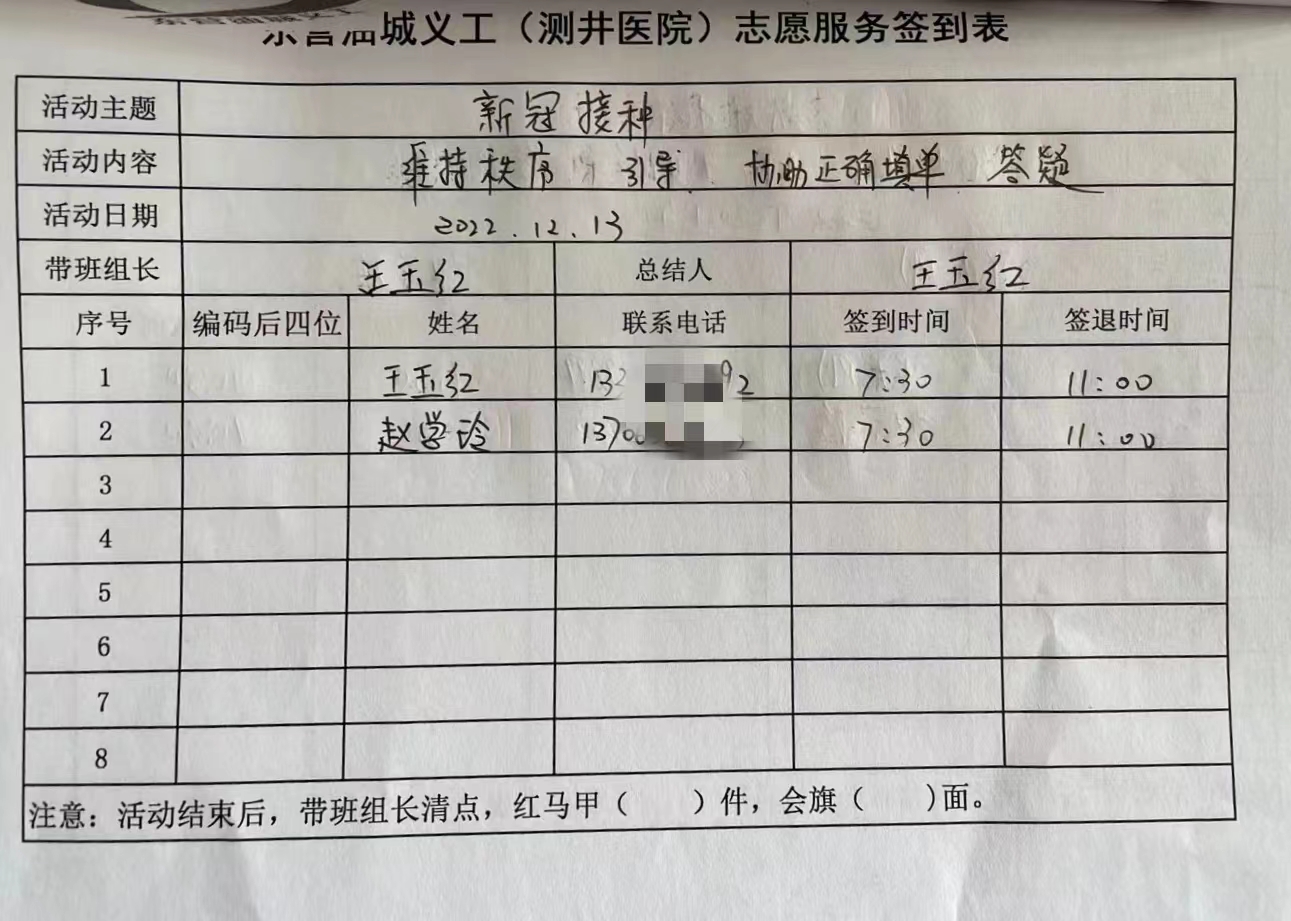 东营油城义工（测井医院）志愿服务签到表
活动主题 新冠接种
活动内容 维持秩序 引导、协助正确填单、答疑
活动日期 2022.12.13
带班组长 王玉红 总结人 王玉红
序号 编码后四位 姓名 联系电话 签到时间 签退时间
1 王玉红 132 92 7:30 11:00
2 赵学玲 1370 7:30 11:00
3
4
5
6
7
8
注意：活动结束后，带班组长清点，红马甲（ ）件，会旗（ ）面。